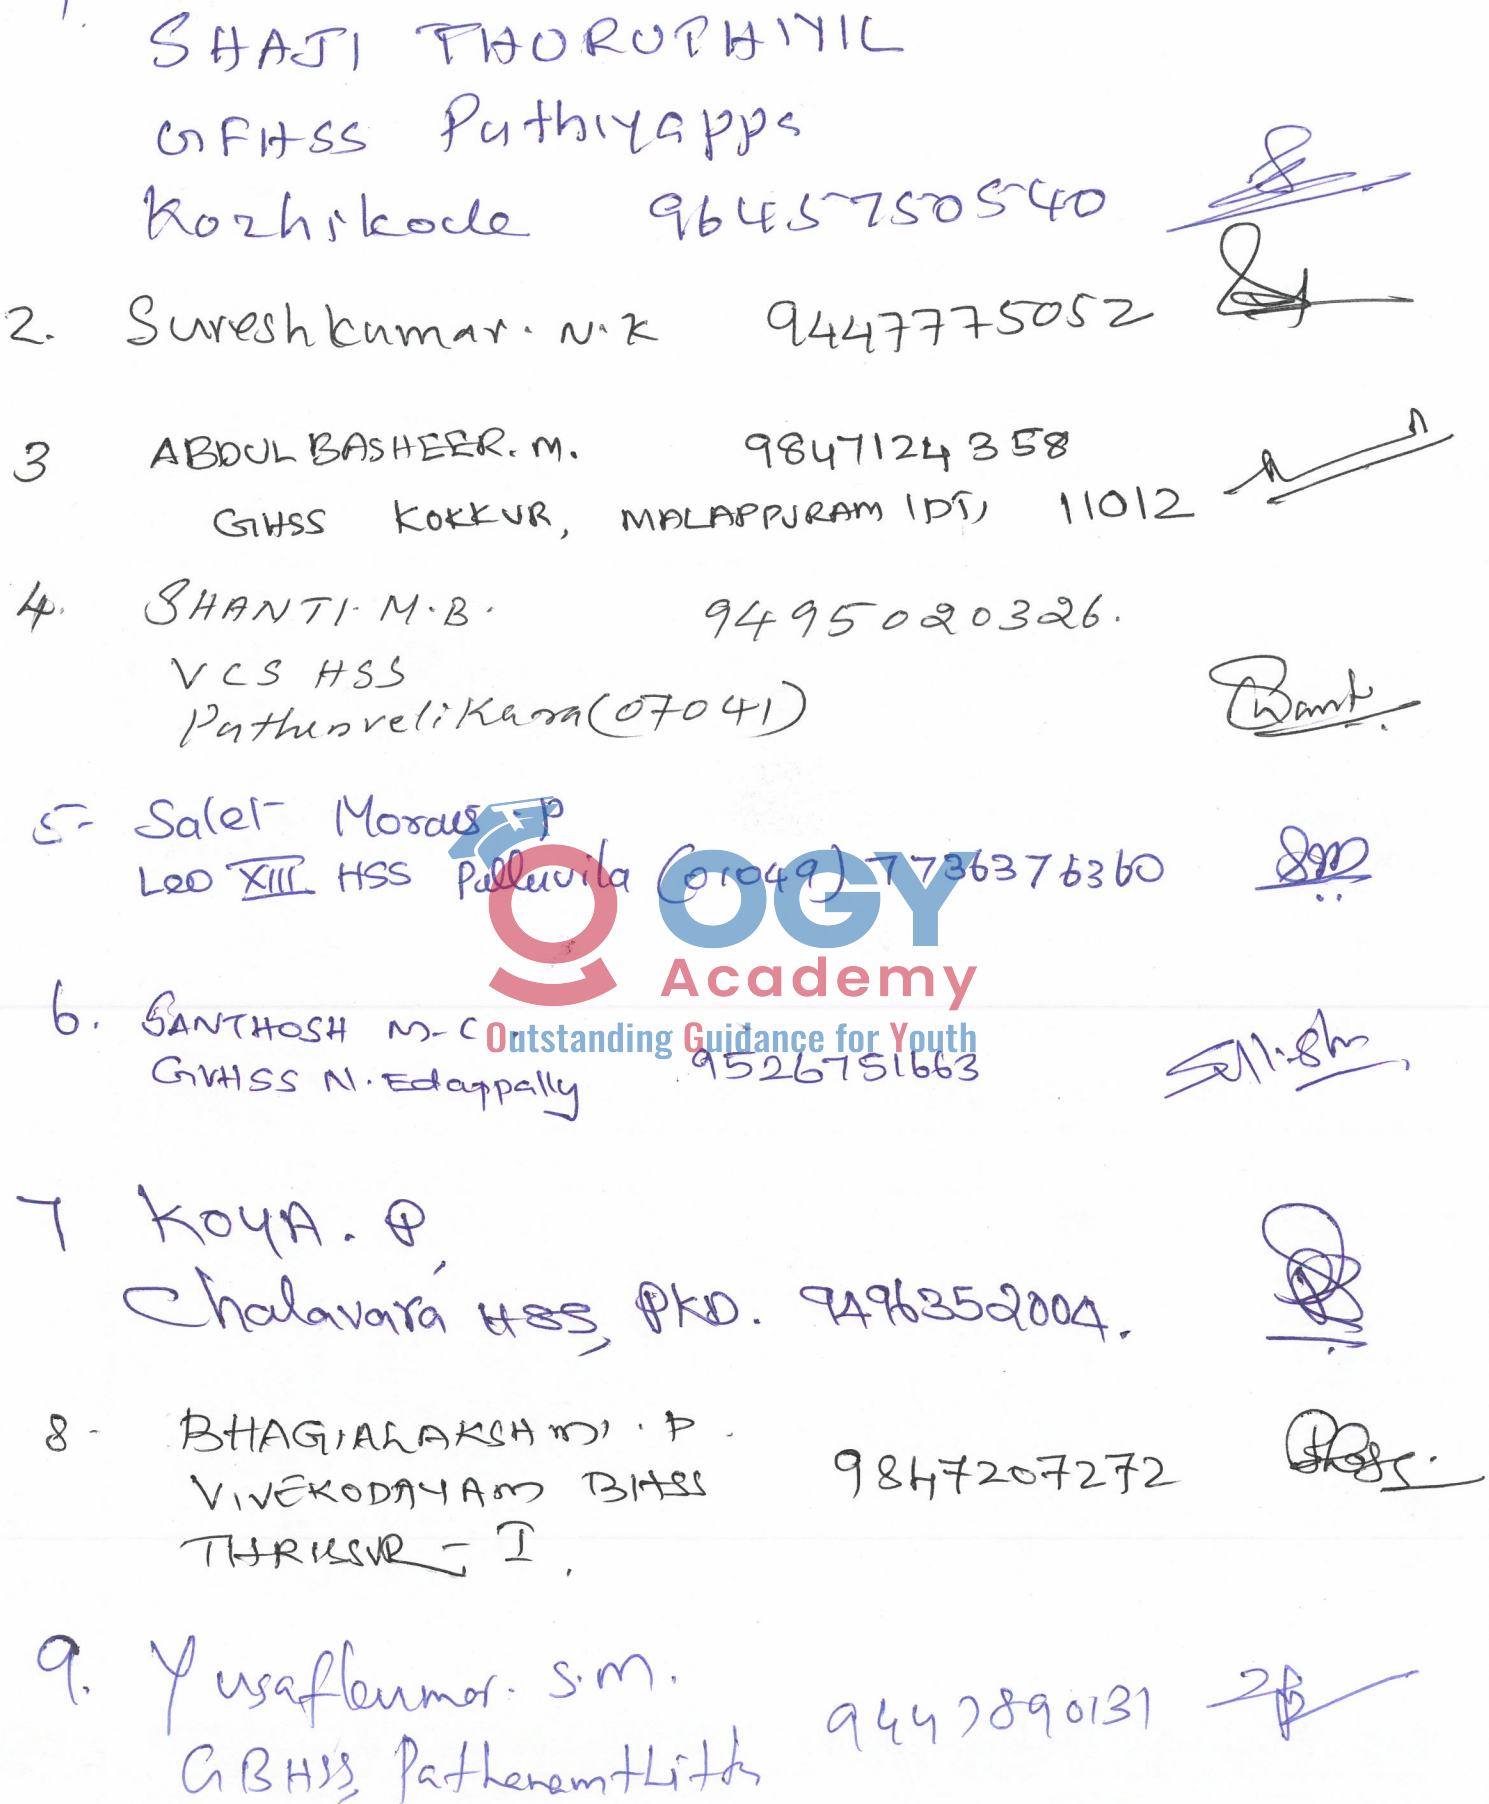 1.
SHAJI THORUPHIYIL
GFHSS Puthiyappa
Kozhikode 9645750540
2. Sureshkumar. N.K 9447775052
3 ABDUL BASHEER. M. 9847124358
GHSS KOKKUR, MALAPPURAM (DT) 11012
4. SHANTI. M.B. 9495020326.
VCS HSS
Puthenvelikara (07041)
5- Salet Morais . P
Leo XIII HSS Pulluvila (01049) 7736376360
OGY
Academy
Outstanding Guidance for Youth
6. SANTHOSH M-C.
GVHSS N. Edappally 9526751663
7 KOYA. P,
Chalavara HSS, PKD. 9496352004.
8- BHAGIALAKSHMI. P.
VIVEKODAYAM BHSS 9847207272
THRISSUR - I.
9. Yusafkumar. S.M. 9447890131
GBHSS,